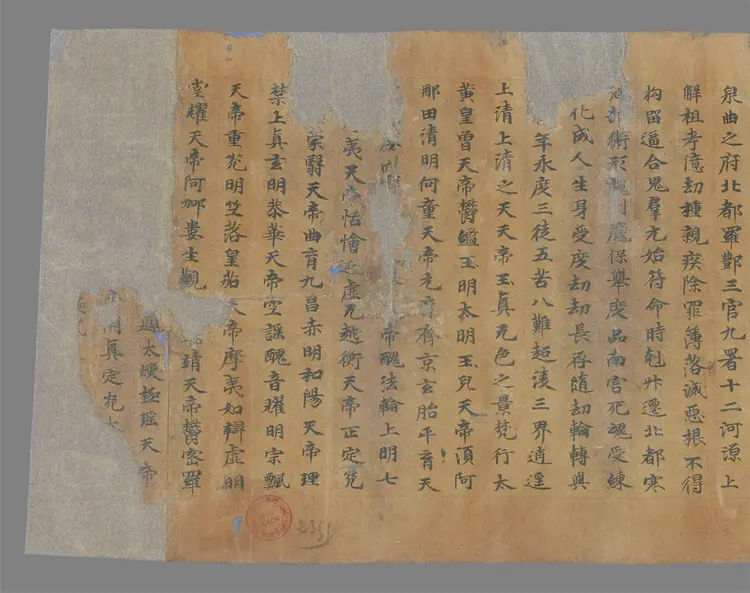 泉曲之府北都羅酆三官九署十二河源上
解祖考億劫種親疾除罪簿落滅惡根不得
拘留逼合鬼羣元始符命時剋升遷北都寒
部衛形制魔保舉度品南宮死魂受練
化成人生身受度劫劫長存隨劫輪轉與
年永度三徒五苦八難超淩三界逍遥
上清上清之天天帝玉真无色之景梵行太
黄皇曾天帝欝繿玉明太明玉皃天帝湏阿
那田清明何童天帝元育齊京玄胎平育天
帝醜法輪上明七
夷天帝恬憎延虚无越衡天帝正定光
宗翳天帝曲育九昌赤明和陽天帝理
禁上真玄明恭華天帝空謡醜音耀明宗飄
天帝重光明竺落皇笳天帝摩夷如辯虚明
堂耀天帝阿郍婁生觀靖天帝欝密羅
題太煥極瑶天帝
真定光太
2355